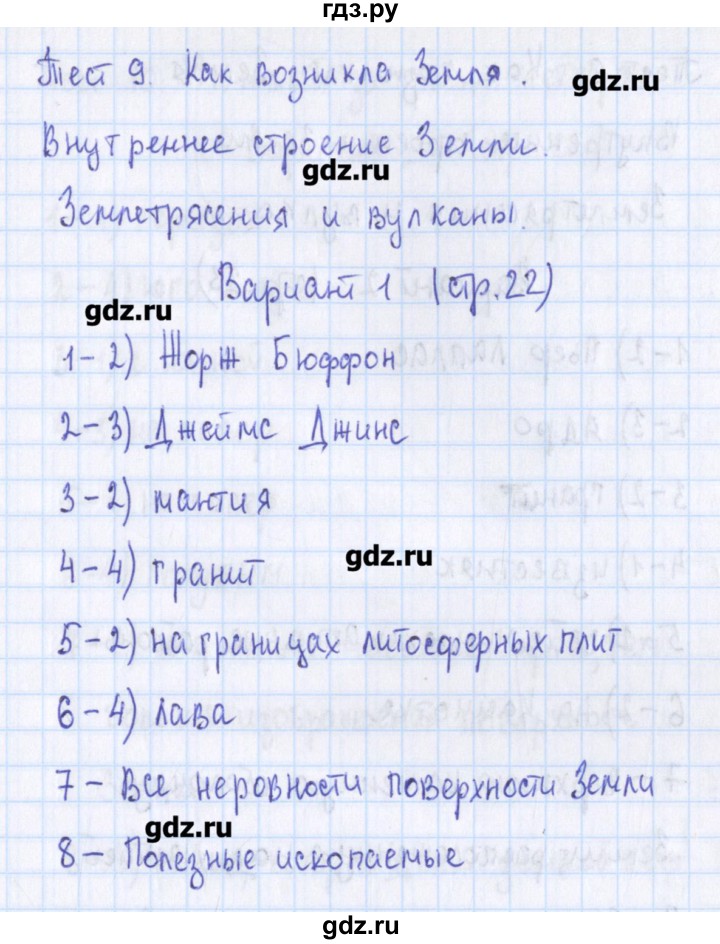 гдз.ру
Тест 9. Как возникла Земля.
gdz.ru
Внутреннее строение Земли.
gdz.ru
Землетрясения и вулканы.
Вариант 1 (стр.22)
gdz.ru
1-2) Жорж Бюффон
2-3) Джеймс Джинс
3-2) мантия
gdz.ru
4-4) гранит
5-2) на границах литосферных плит
6-4) лава
7- Все неровности поверхности Земли
gdz.ru
8- Полезные ископаемые
gdz.ru